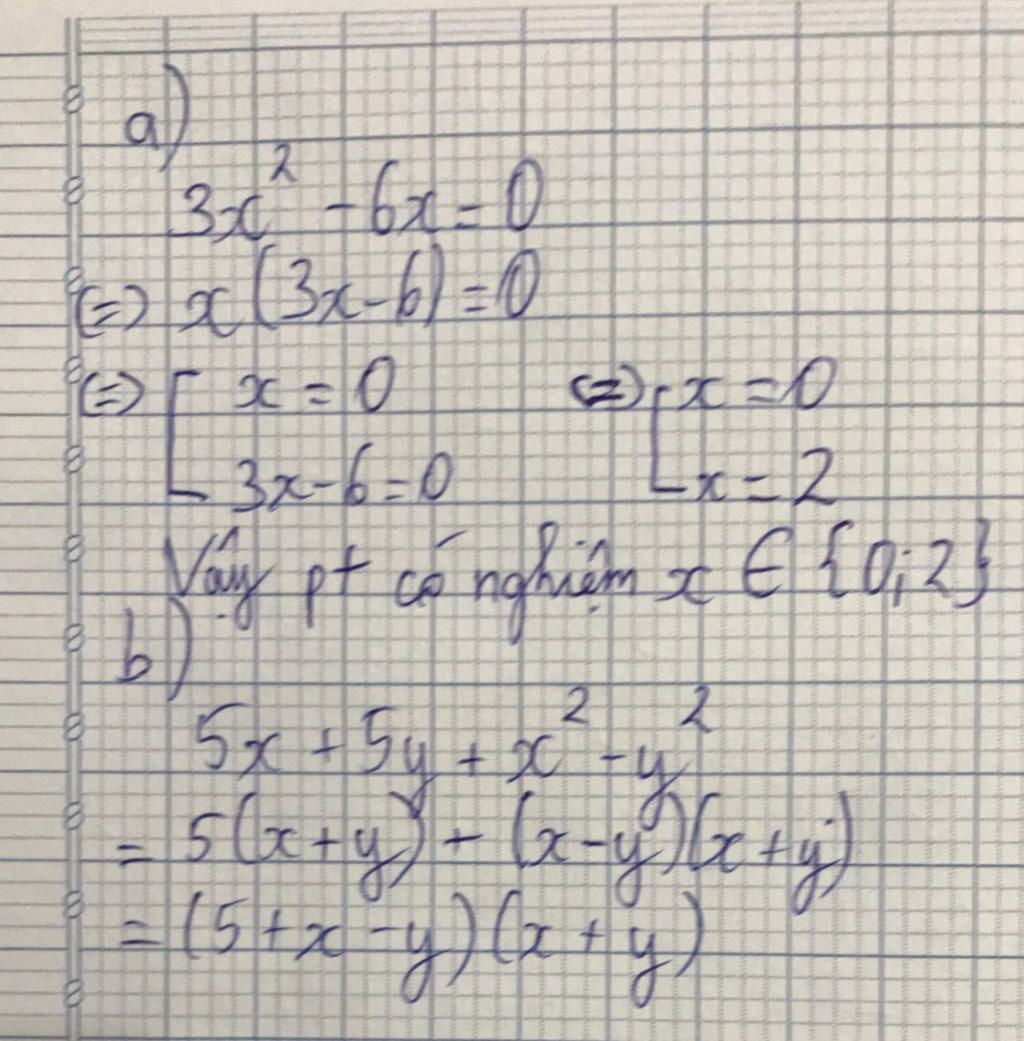 a)
3x² - 6x = 0
(=) x(3x - 6) = 0
(=) [ x = 0 (=) [ x = 0
3x - 6 = 0 x = 2
Vậy pt có nghiệm x ∈ {0; 2}
b)
5x + 5y + x² - y²
= 5(x + y) + (x - y)(x + y)
= (5 + x - y)(x + y)